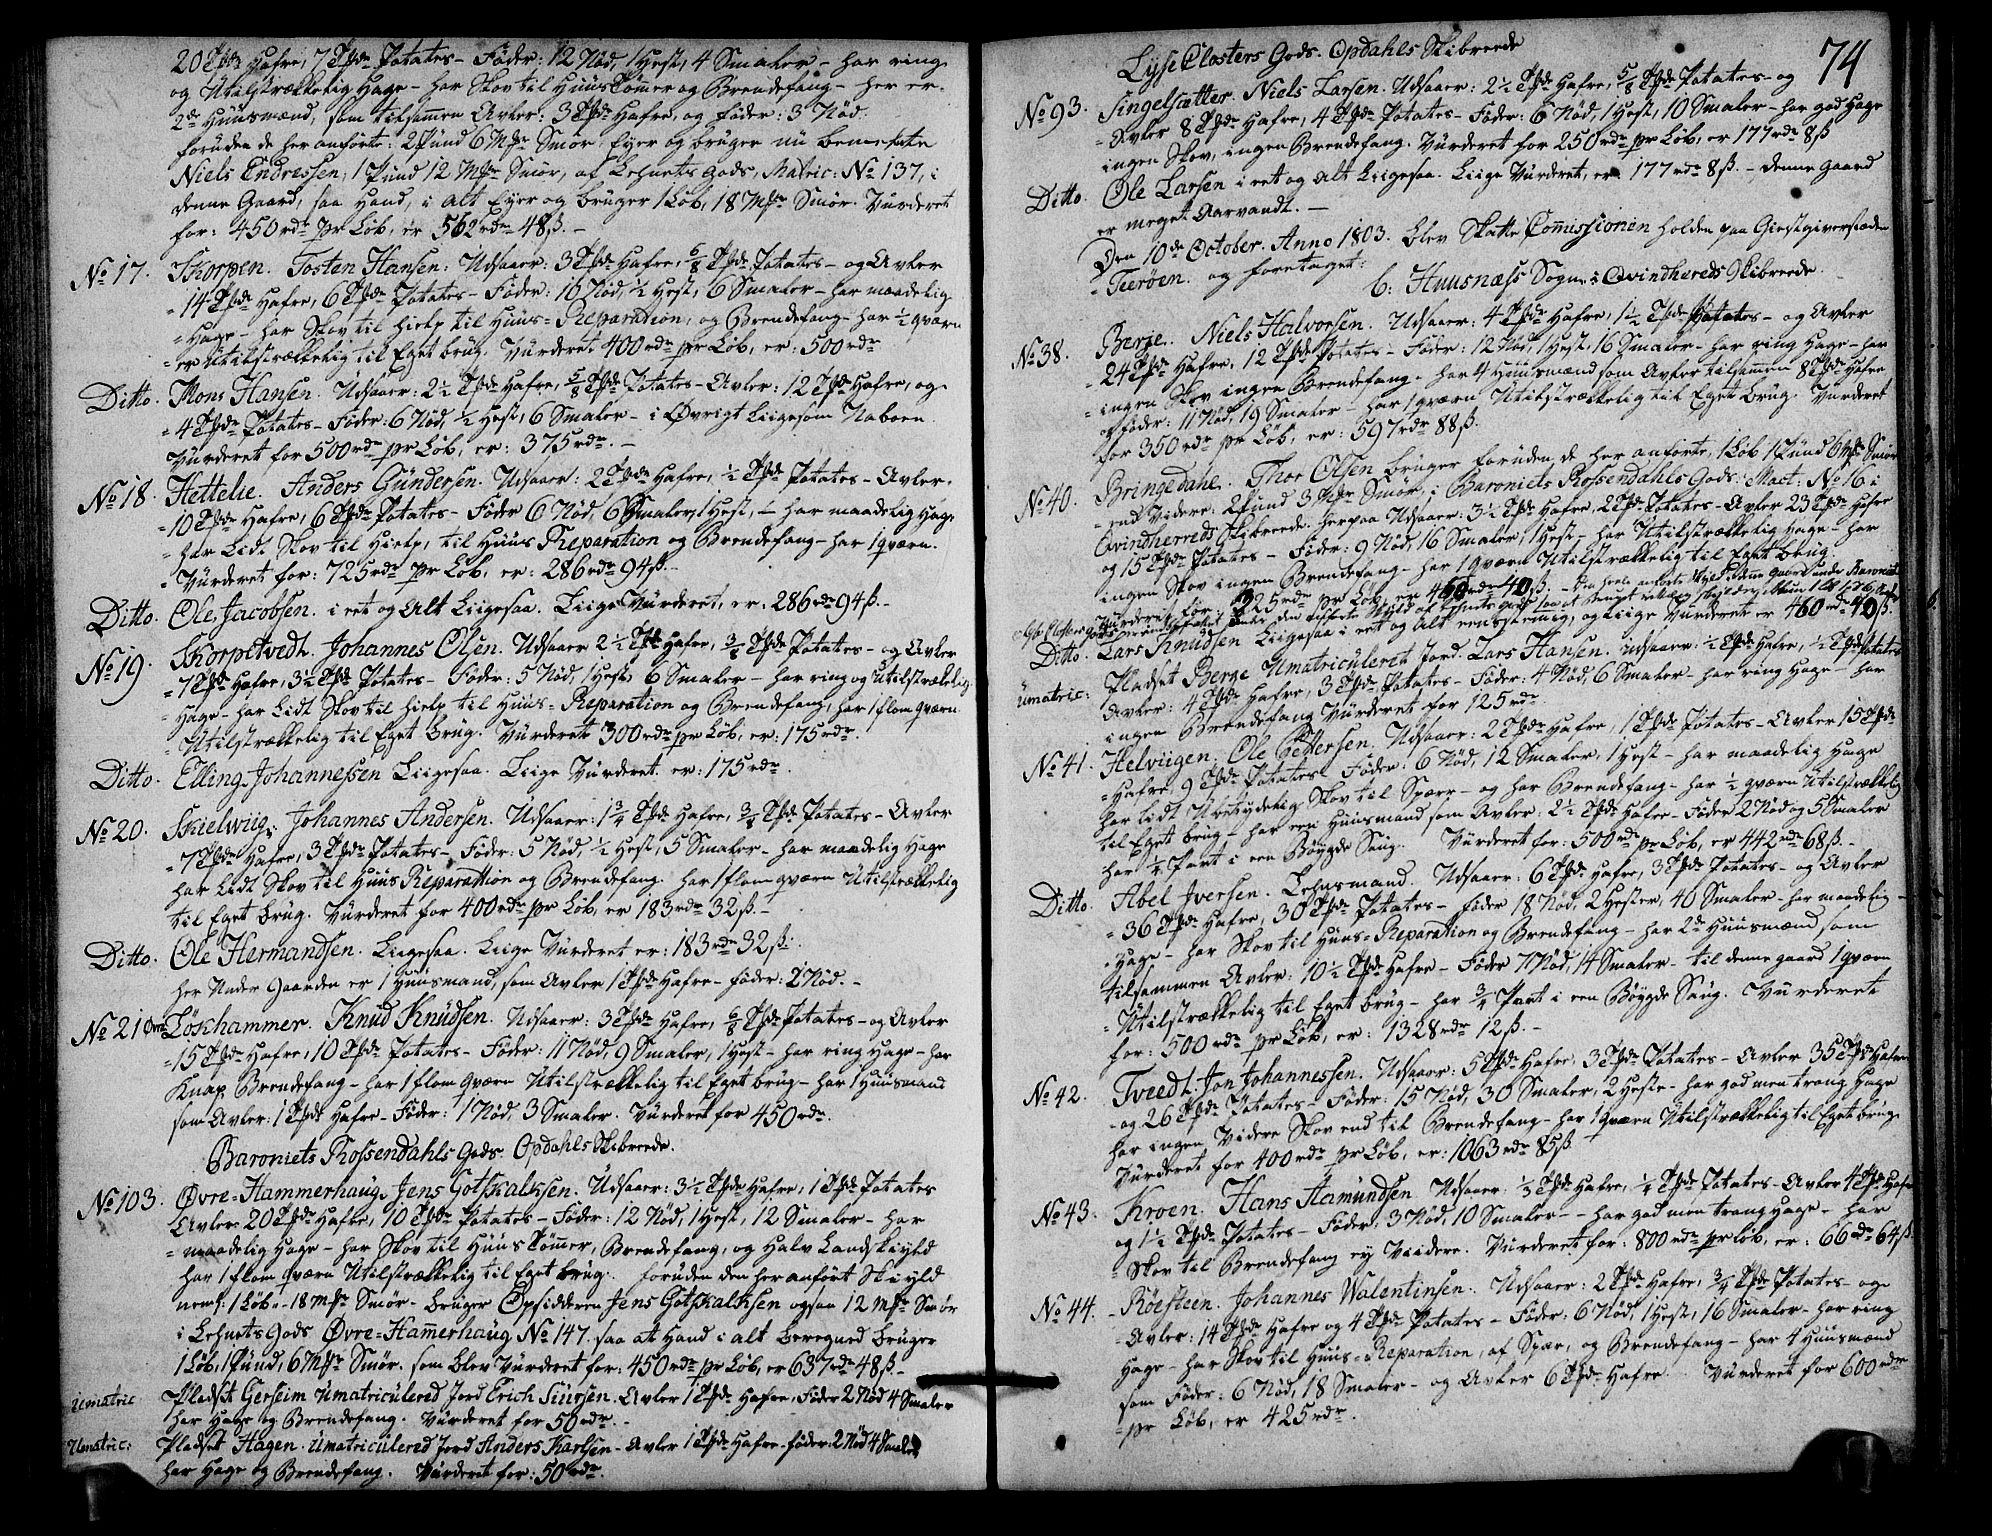 20 Tønder Hafre, 7 Tønder Potates – Føder: 12 Nød, 1 Hest, 4 Smaler – har ring
og Utilstrækkelig Hage – har Skov til Huus Tømmer og Brendefang – her er
2de Huusmænd, som tilsammen Avler: 3 Tønder Hafre, og føder: 3 Nød.
foruden de her anførte: 2 Pund 6 Mrk Smør Eyer og bruger nu bemelte
Niels Endressen, 1 Pund 12 Mrk Smør, af Lehnets Gods, Matric: No 137, i
denne Gaard, saa hand, i alt Eyer og bruger 1 Løb, 18 Mrk Smør. Vurderet
for: 450 rdr pr Løb, er 562 rdr 48 ß. –
No 17. Skorpen. Tosten Hansen: Udsaaer: 3 Tønder Hafre, 6/8 Tønde Potates – og Avler
14 Tønder Hafre, 6 Tønder Potates – Føder: 10 Nød, ½ Hest, 6 Smaler – har maadelig
Hage – har Skov til hielp til Huus-Reparation, og Brendefang – har ½ qværn
er Utilstrækkelig til Eget brug. Vurderet 400 rdr pr Løb, er: 500 rdr
Ditto. Mons Hansen. Udsaaer: 2½ Tønde Hafre, 5/8 Tønde Potates – Avler: 12 Tønder Hafre, og
4 Tønder Potates – Føder: 6 Nød, ½ Hest, 6 Smaler – i Øvrigt Liigesom Naboen
Vurderet for 500 rdr pr Løb, er: 375 rdr. –
No 18. Hettelie. Anders Gundersen. Udsaaer: 2 Tønder Hafre, ½ Tønde Potates – Avler.
10 Tønder Hafre, 6 Tønder Potates – Føder 6 Nød, 6 Smaler, 1 Hest, – har maadelig Hage
har Lidt Skov til Hielp, til Huus Reparation og Brendefang – har 1 qværn.
Vurderet for: 725 rdr pr Løb, er: 286 rdr 94 ß. –
Ditto. Ole Jacobsen. i ret og Alt Liigesaa. Liige Vurderet, er: 286 rdr 94 ß. –
No 19. Skorpetvedt. Johannes Olsen. Udsaaer 2½ Tønde Hafre, 3/8 Tønde Potates – og Avler
7 Tønder Hafre, 3½ Tønde Potates – Føder: 5 Nød, 1 Hest, 6 Smaler – har ring og utilstrækelig
Hage – har Lidt Skov til hielp til Huus-Reparation og Brendefang, har 1 flom qværn
Utilstrækkelig til Eget brug. Vurderet 300 rdr pr Løb, er: 175 rdr.
Ditto. Elling Johannessen Liigesaa. Liige Vurderet. er: 175 rdr.
No 20. Skielwiig. Johannes Andersen. Udsaaer: 1¾ Tønde Hafre, 3/8 Tønde Potates – Avler
7 Tønder Hafre, 3 Tønder Potates – Føder: 5 Nød, ½ Hest, 5 Smaler – har maadelig Hage
har Lidt Skov til Huus Reparattion og Brendefang. har 1 flom qværn Utilstrækkelig
til Eget brug. Vurderet for 400 rdr pr Løb, er 183 rdr 32 ß. –
Ditto. Ole Hermandsen. Liigesaa. Liige Vurderet er: 183 rdr 32 ß:
her Under Gaarden er 1 Huusmand, som Avler 1 Tønde Hafre – føder: 2 Nød. –
No 21 Øvre Løskhammer. Knud Knudsen. Udsaaer: 3 Tønder Hafre, 6/8 Tønde Potates – og Avler
15 Tønder Hafre, 10 Tønder Potates – Føder: 11 Nød, 9 Smaler, 1 Hest – har ring Hage – har
Knap Brendefang – har 1 flom qværn Utilstrækkelig til Eget brug – har 1 Huusmand
som Avler: 1 Tønde Hafre – Føder: 1 Nød, 3 Smaler. Vurderet for 450 rdr.
Baroniets Rossendahls Gods. Opdahls Skibreede.
No 103. Øvre-Hammerhaug. Jens Gotskalksen. Udsaaer: 3½ Tønde Hafre, 1 Tønde Potates
Avler 20 Tønder Hafre, 10 Tønder Potates – Føder: 12 Nød, 1 Hest, 12 Smaler – har
maadelig Hage – har Skov til Huus Tømmer, Brendefang, og Halv Landskiyld
har 1 flom qværn Utilstrækkelig til Eget brug. foruden den her anført Skiyld
neml: 1 Løb – 18 Mrk Smør – bruger Opsidderen Jens Gotskalksen ogsaa 12 Mrk Smør
i Lehnets Gods Øvre-Hammerhaug No 147. saa at Hand i alt beregned bruger
1 Løb, 1 Pund, 6 Mrk Smør. som blev Vurderet for: 450 rdr pr Løb, er 637 rdr 48 ß. –
Umatric Pladset Gerseim Umatriculered Jord Erich Siursen. Avler 1 Tønde Hafre, Føder 2 Nød 4 Smaler
har Hage og Brendefang. Vurderet for 50 rdr. –
Umatric: Pladset Hagen. Umatriculered Jord Anders Karlsen – Avler 1 Tønde Hafre – føder: 2 Nød 4 Smaler
har Hage og Brendefang. Vurderet for: 50 rdr.
74
Lyse Closters Gods. Opdahls Skibreede
No 93. Singelsætter. Niels Larsen. Udsaaer: 2½ Tønde Hafre, 5/8 Tønde Potates – og
Avler 8 Tønder Hafre, 4 Tønder Potates – Føder: 6 Nød, 1 Hest, 10 Smaler – har god Hage
ingen Skov, ingen Brendefang. Vurderet for 250 rdr pr Løb, er 177 rdr 8 ß
Ditto. Ole Larsen i ret og Alt Liigesaa. Liige Vurderet, er 177 rdr 8 ß. – denne Gaard
er meget Aarvandt. –
Den 10de October. Anno 1803. blev Skatte Commissionen holden paa Giestgiverstæden
Teerøen. og foretaget:
6: Huusnæss Sogn i Qvindherreds Skibreede.
No 38. Berge. Niels Halvorsen. Udsaaer: 4 Tønder Hafre, 1½ Tønde Potates – og Avler
24 Tønder Hafre, 12 Tønder Potates – Føder: 12 Nød, 1 Hest, 16 Smaler – har ring Hage – har
ingen Skov ingen Brendefang – har 4 Huusmænd som Avler tilsammen 8 Tønder Hafre
og føder: 11 Nød, 19 Smaler – har 1 qværn Utilstrækkelig til Eget brug. Vurderet
for 350 rdr pr Løb, er: 597 rdr 88 ß.
No 40. Bringedahl. Thor Olsen bruger foruden de her anførte, 1 Løb 1 Pund 6 Mrk Smør
end Videre: 2 Pund 3 Mrk Smør, i Baroniets Rossendahls Gods: Mact: No 16 i
Qvindherreds Skibreede. herpaa Udsaaer: 3½ Tønde Hafre, 2 Tønder Potates – Avler 23 Tønder Hafre
og 15 Tønder Potates – Føder: 9 Nød, 16 Smaler, 1 Hest – har Utilstrækkelig Hage – har
ingen Skov ingen Brendefang – har 1 qværn Utilstrækkelig til Eget brug.
Vurderet for: 225 rdr pr Løb, er 460 rdr 40 ß. –
Ditto. Lars Knudsen Liigesaa i ret og Alt eensstemig, og Liige Vurderet er 460 rdr 40 ß.
Umatric: Pladset Berge Umatriculeret Jord. Lars Hansen. Udsaaer: ½ Tønde Hafre, ½ Tønde Potates
Avler: 4 Tønder Hafre, 3 Tønder Potates – Føder: 4 Nød, 6 Smaler – har ring Hage – har
ingen Brendefang Vurderet for 125 rdr
No 41. Helviigen. Ole Pedersen. Udsaaer: 2 Tønder Hafre, 1 Tønde Potates – Avler 15 Tønder
Hafre, 9 Tønder Potates – Føder: 6 Nød, 12 Smaler, 1 Hest – har maadelig Hage
har lidt Ubetydelig Skov til Spærr – og har Brendefang – har ½ qværn Utilstrækkelig
til Eget brug – har een Huusmand som Avler: 2½ Tønde Hafre – Føder 2 Nød og 5 Smaler
har ¼ Part i een Bøygde Saug. Vurderet for: 500 rdr pr Løb, er 442 rdr 68 ß. –
Ditto. Abel Iversen. Lehnsmand. Udsaaer: 6 Tønder Hafre, 3 Tønder Potates – og Avler
36 Tønder Hafre, 30 Tønder Potates – Føder 18 Nød, 2 Hester, 40 Smaler – har maadelig
Hage – har Skov til Huus-Reparation og Brendefang – har 2de Huusmænd som
tilsammen Avler: 10½ Tønde Hafre – Føder 7 Nød, 14 Smaler – til denne gaard 1 qværn
Utilstrækkelig til Eget brug – har ¾ Part i een Bøygde Saug. Vurderet
for: 500 rdr pr Løb, er: 1328 rdr 12 ß. –
No 42. Tveedt. Jon Johannessen. Udsaaer: 5 Tønder Hafre, 3 Tønder Potates – Avler 35 Tønder Hafre
og 26 Tønder Potates – Føder: 15 Nød, 30 Smaler, 2 Heste – har god men trang Hage
har ingen Videre Skov end til Brendefang – har 1 qværn Utilstrækkelig til Eget brug.
Vurderet for 400 rdr pr Løb, er: 1063 rdr 85 ß.
No 43. Kroen. Hans Aamundsen. Udsaaer: ⅓ Tønde Hafre, ¼ Tønde Potates – Avler 4 Tønder Hafre
og 1½ Tønde Potates – Føder: 3 Nød, 10 Smaler – – har god men trang Hage – har
Skov til Brendefang ey Viidere. Vurderet for: 800 rdr pr Løb, er: 66 rdr 64 ß.
No 44. Røesteen. Johannes Walentinsen. Udsaaer: 2 Tønder Hafre, ¾ Tønde Potates – og
Avler: 14 Tønder Hafre og 4 Tønder Potates – Føder: 6 Nød, 1 Hest, 16 Smaler – har ring
Hage – har Skov til Huus-Reparation, af Spær, og Brendefang – har 4 Huusmænd
som Føder: 6 Nød, 18 Smaler – og Avler 6 Tønder Hafre. Vurderet for 600 rdr
pr Løb, er 425 rdr.